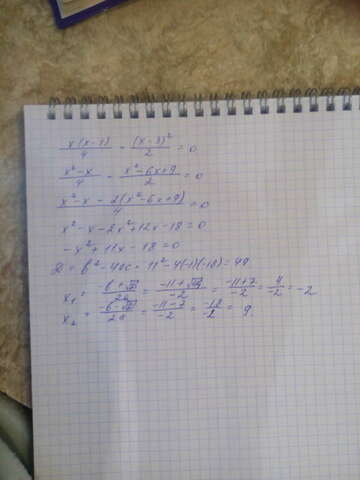 x(x-1)/4 - (x-3)²/2 = 0
x²-x/4 - x²-6x+9/2 = 0
x²-x-2(x²-6x+9)/4 = 0
x²-x-2x²+12x-18=0
-x²+11x-18=0
D = b²-4ac = 11²-4(-1)(-18) = 49
x₁ = -b+√D/2a = -11+√49/-2 = -11+7/-2 = 4/-2 = -2
x₂ = -b-√D/2a = -11-7/-2 = -18/-2 = 9